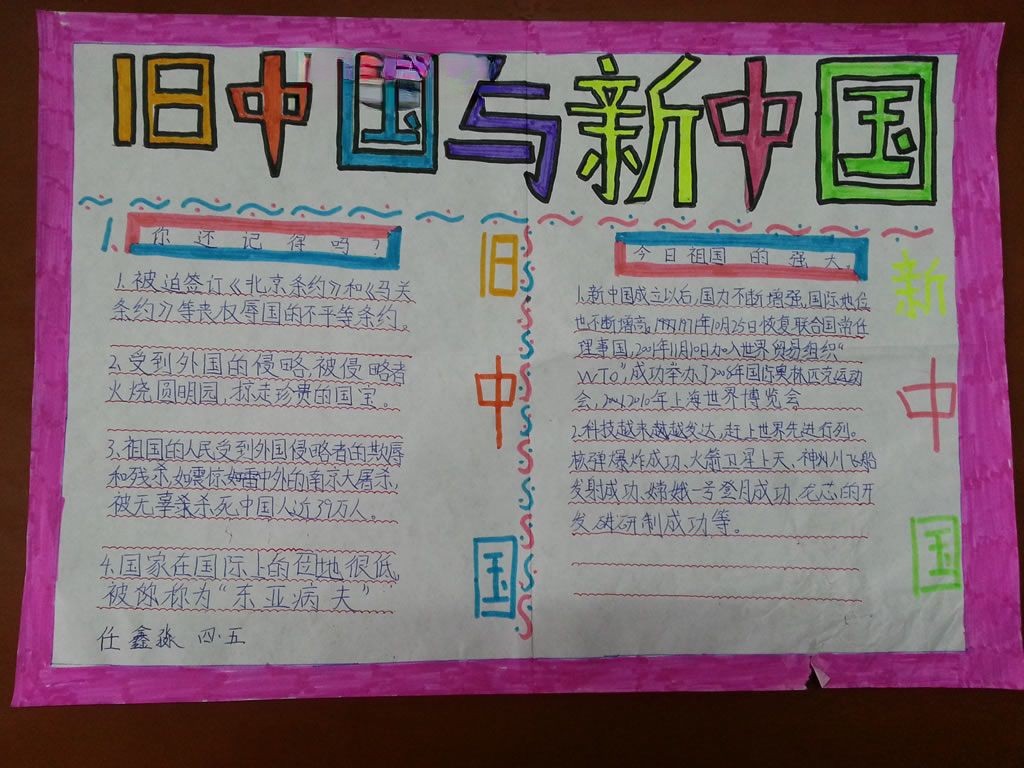 旧中国与新中国
1.你还记得吗?
1.被迫签订《北京条约》和《马关
条约》等丧权辱国的不平等条约。
2.受到外国的侵略,被侵略者
火烧圆明园,掠走珍贵的国宝。
3.祖国的人民受到外国侵略者的欺辱
和残杀,如震惊中外的南京大屠杀,
被无辜杀死中国人近39万人。
4.国家在国际上的位地很低,
被你称为“东亚病夫”
任鑫淼 四·五
旧
中
国
今日祖国的强大。
1.新中国成立以后,国力不断增强,国际地位
也不断增高。1971年10月25日恢复联合国常任
理事国,2001年11月10日加入世界贸易组织“
WTO”,成功举办了2008年国际奥林匹克运动
会,2010年上海世界博览会
2.科技越来越越发达,赶上世界先进行列。
核弹爆炸成功、火箭卫星上天、神州飞船
发射成功、嫦娥一号登月成功、龙芯的开
发研制成功等。
新
中
国